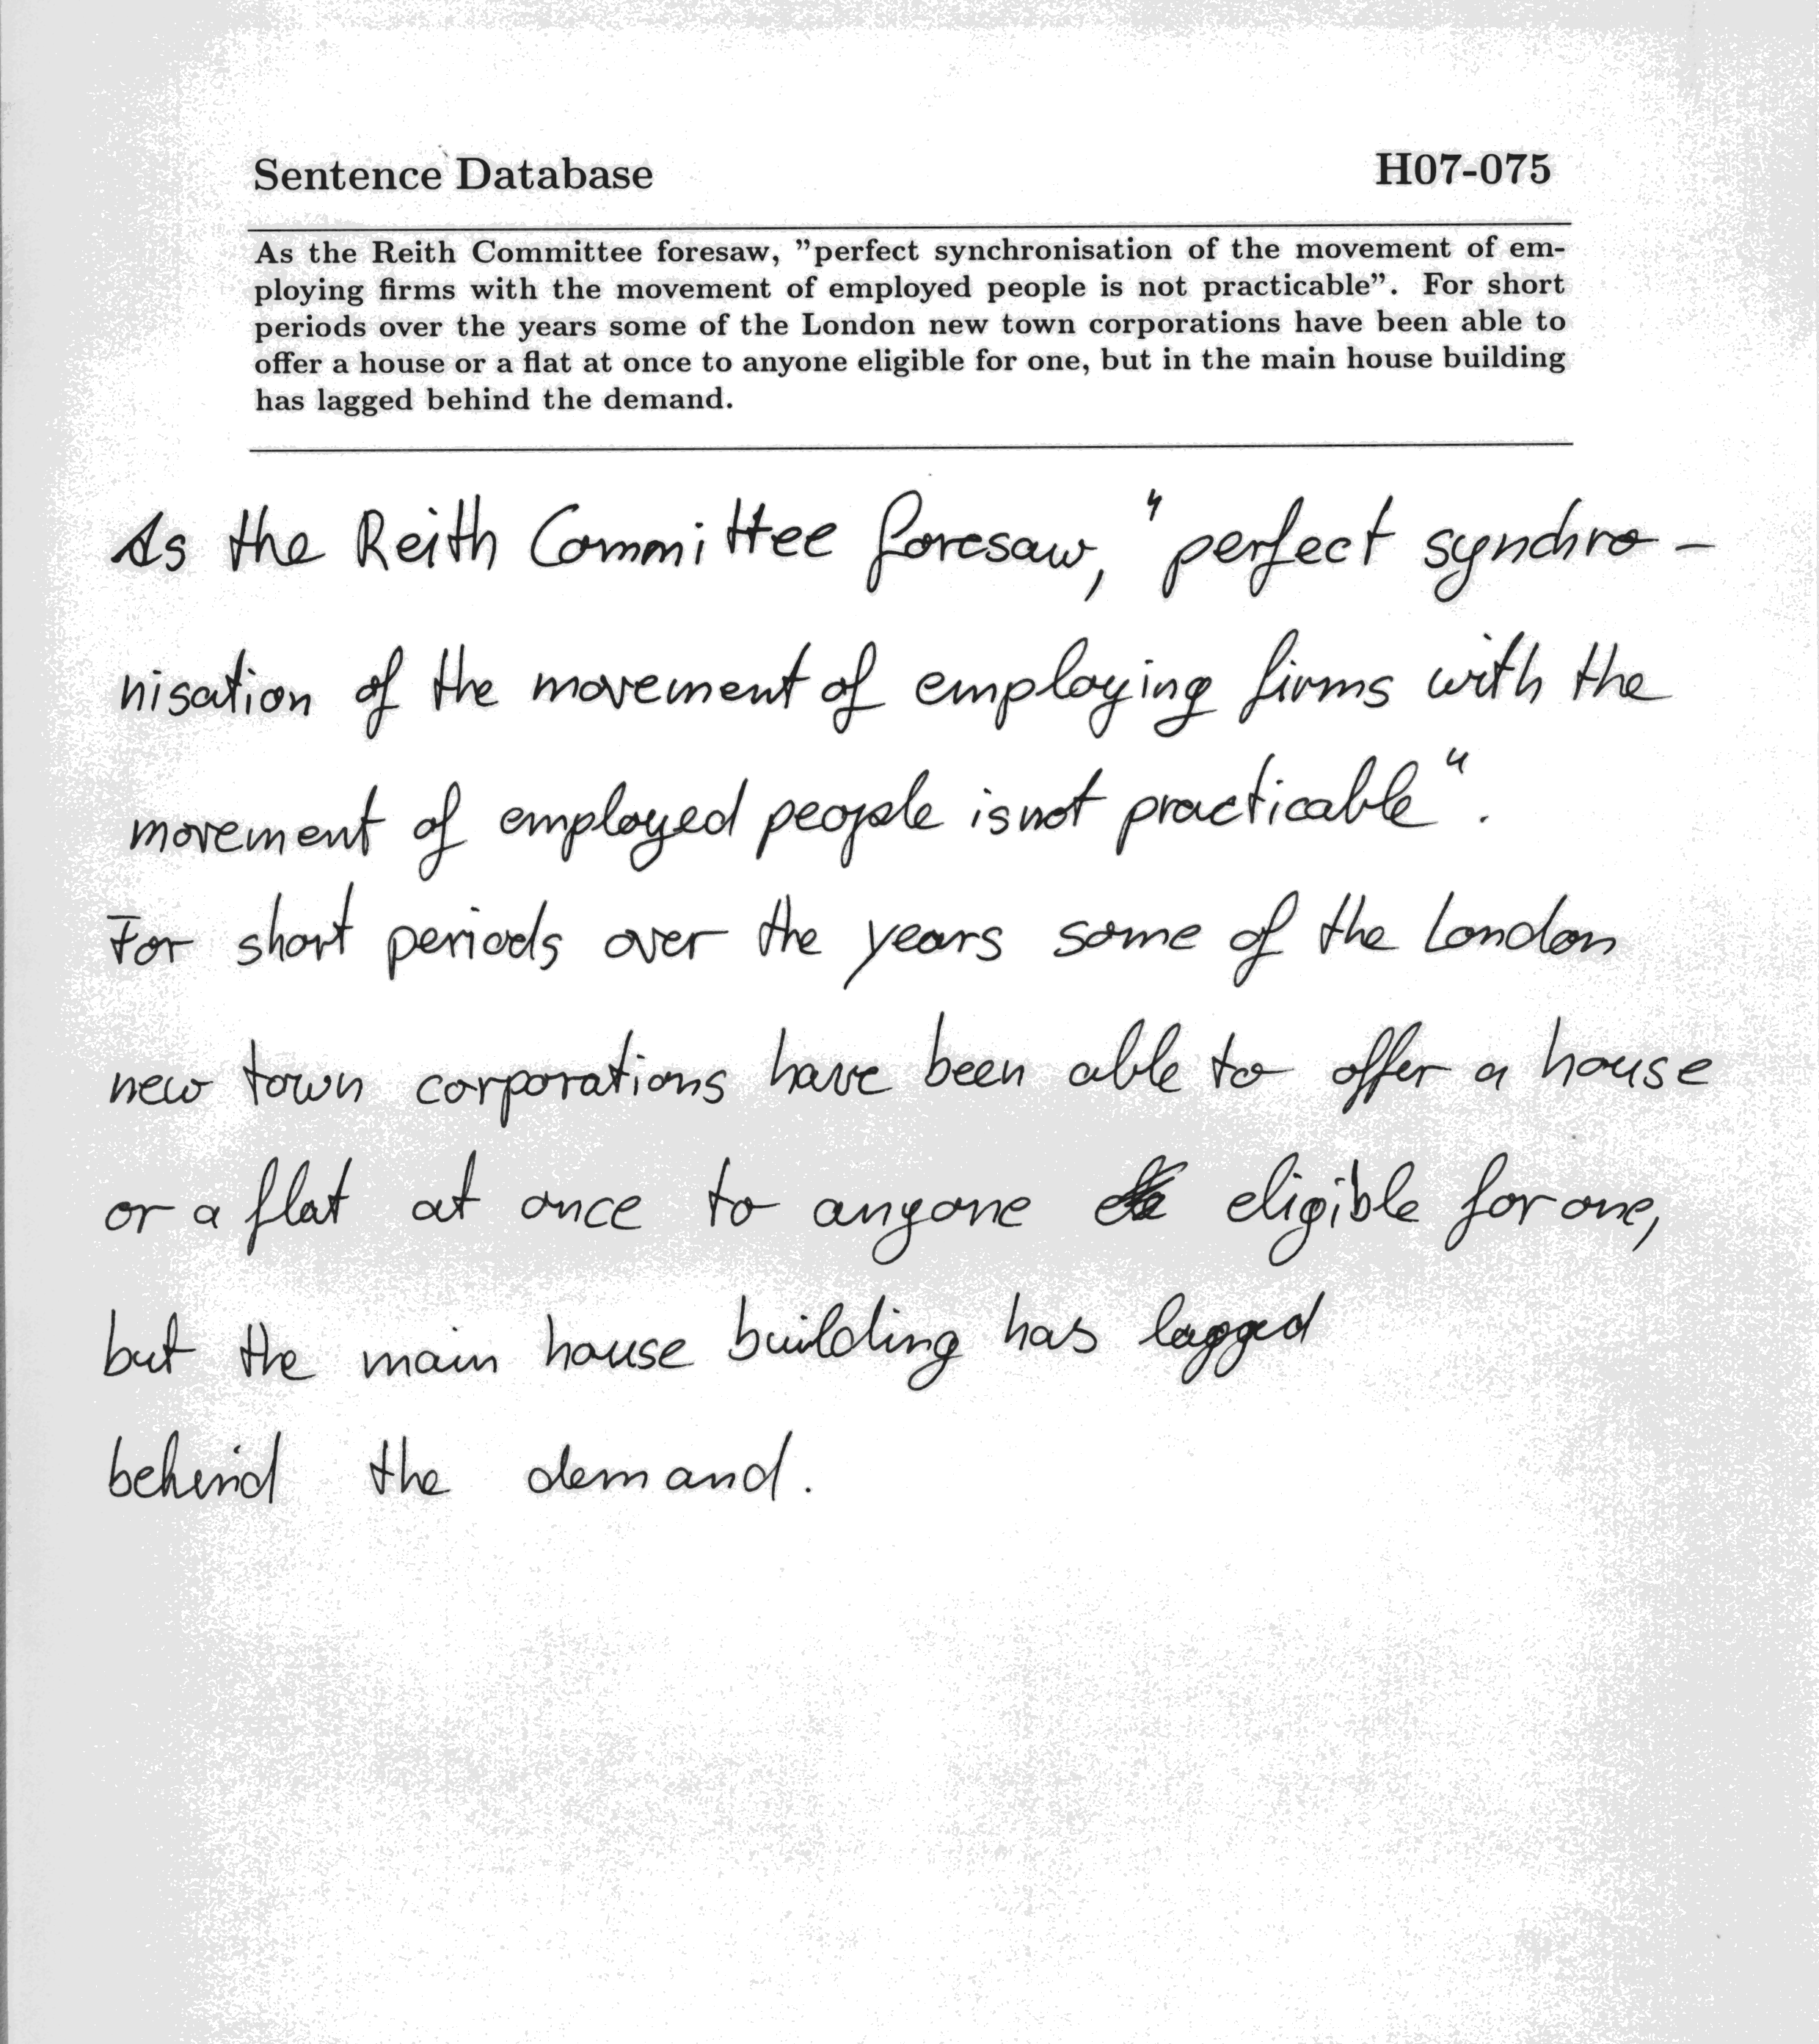 Sentence Database H07-075
As the Reith Committee foresaw, ”perfect synchronisation of the movement of em-
ploying firms with the movement of employed people is not practicable”. For short
periods over the years some of the London new town corporations have been able to
offer a house or a flat at once to anyone eligible for one, but in the main house building
has lagged behind the demand.
As the Reith Committee foresaw, " perfect synchro-
nisation of the movement of employing firms with the
movement of employed people is not practicable".
For short periods over the years some of the London
new town corporations have been able to offer a house
or a flat at once to anyone eligible for one,
but the main house building has lagged
behind the demand.